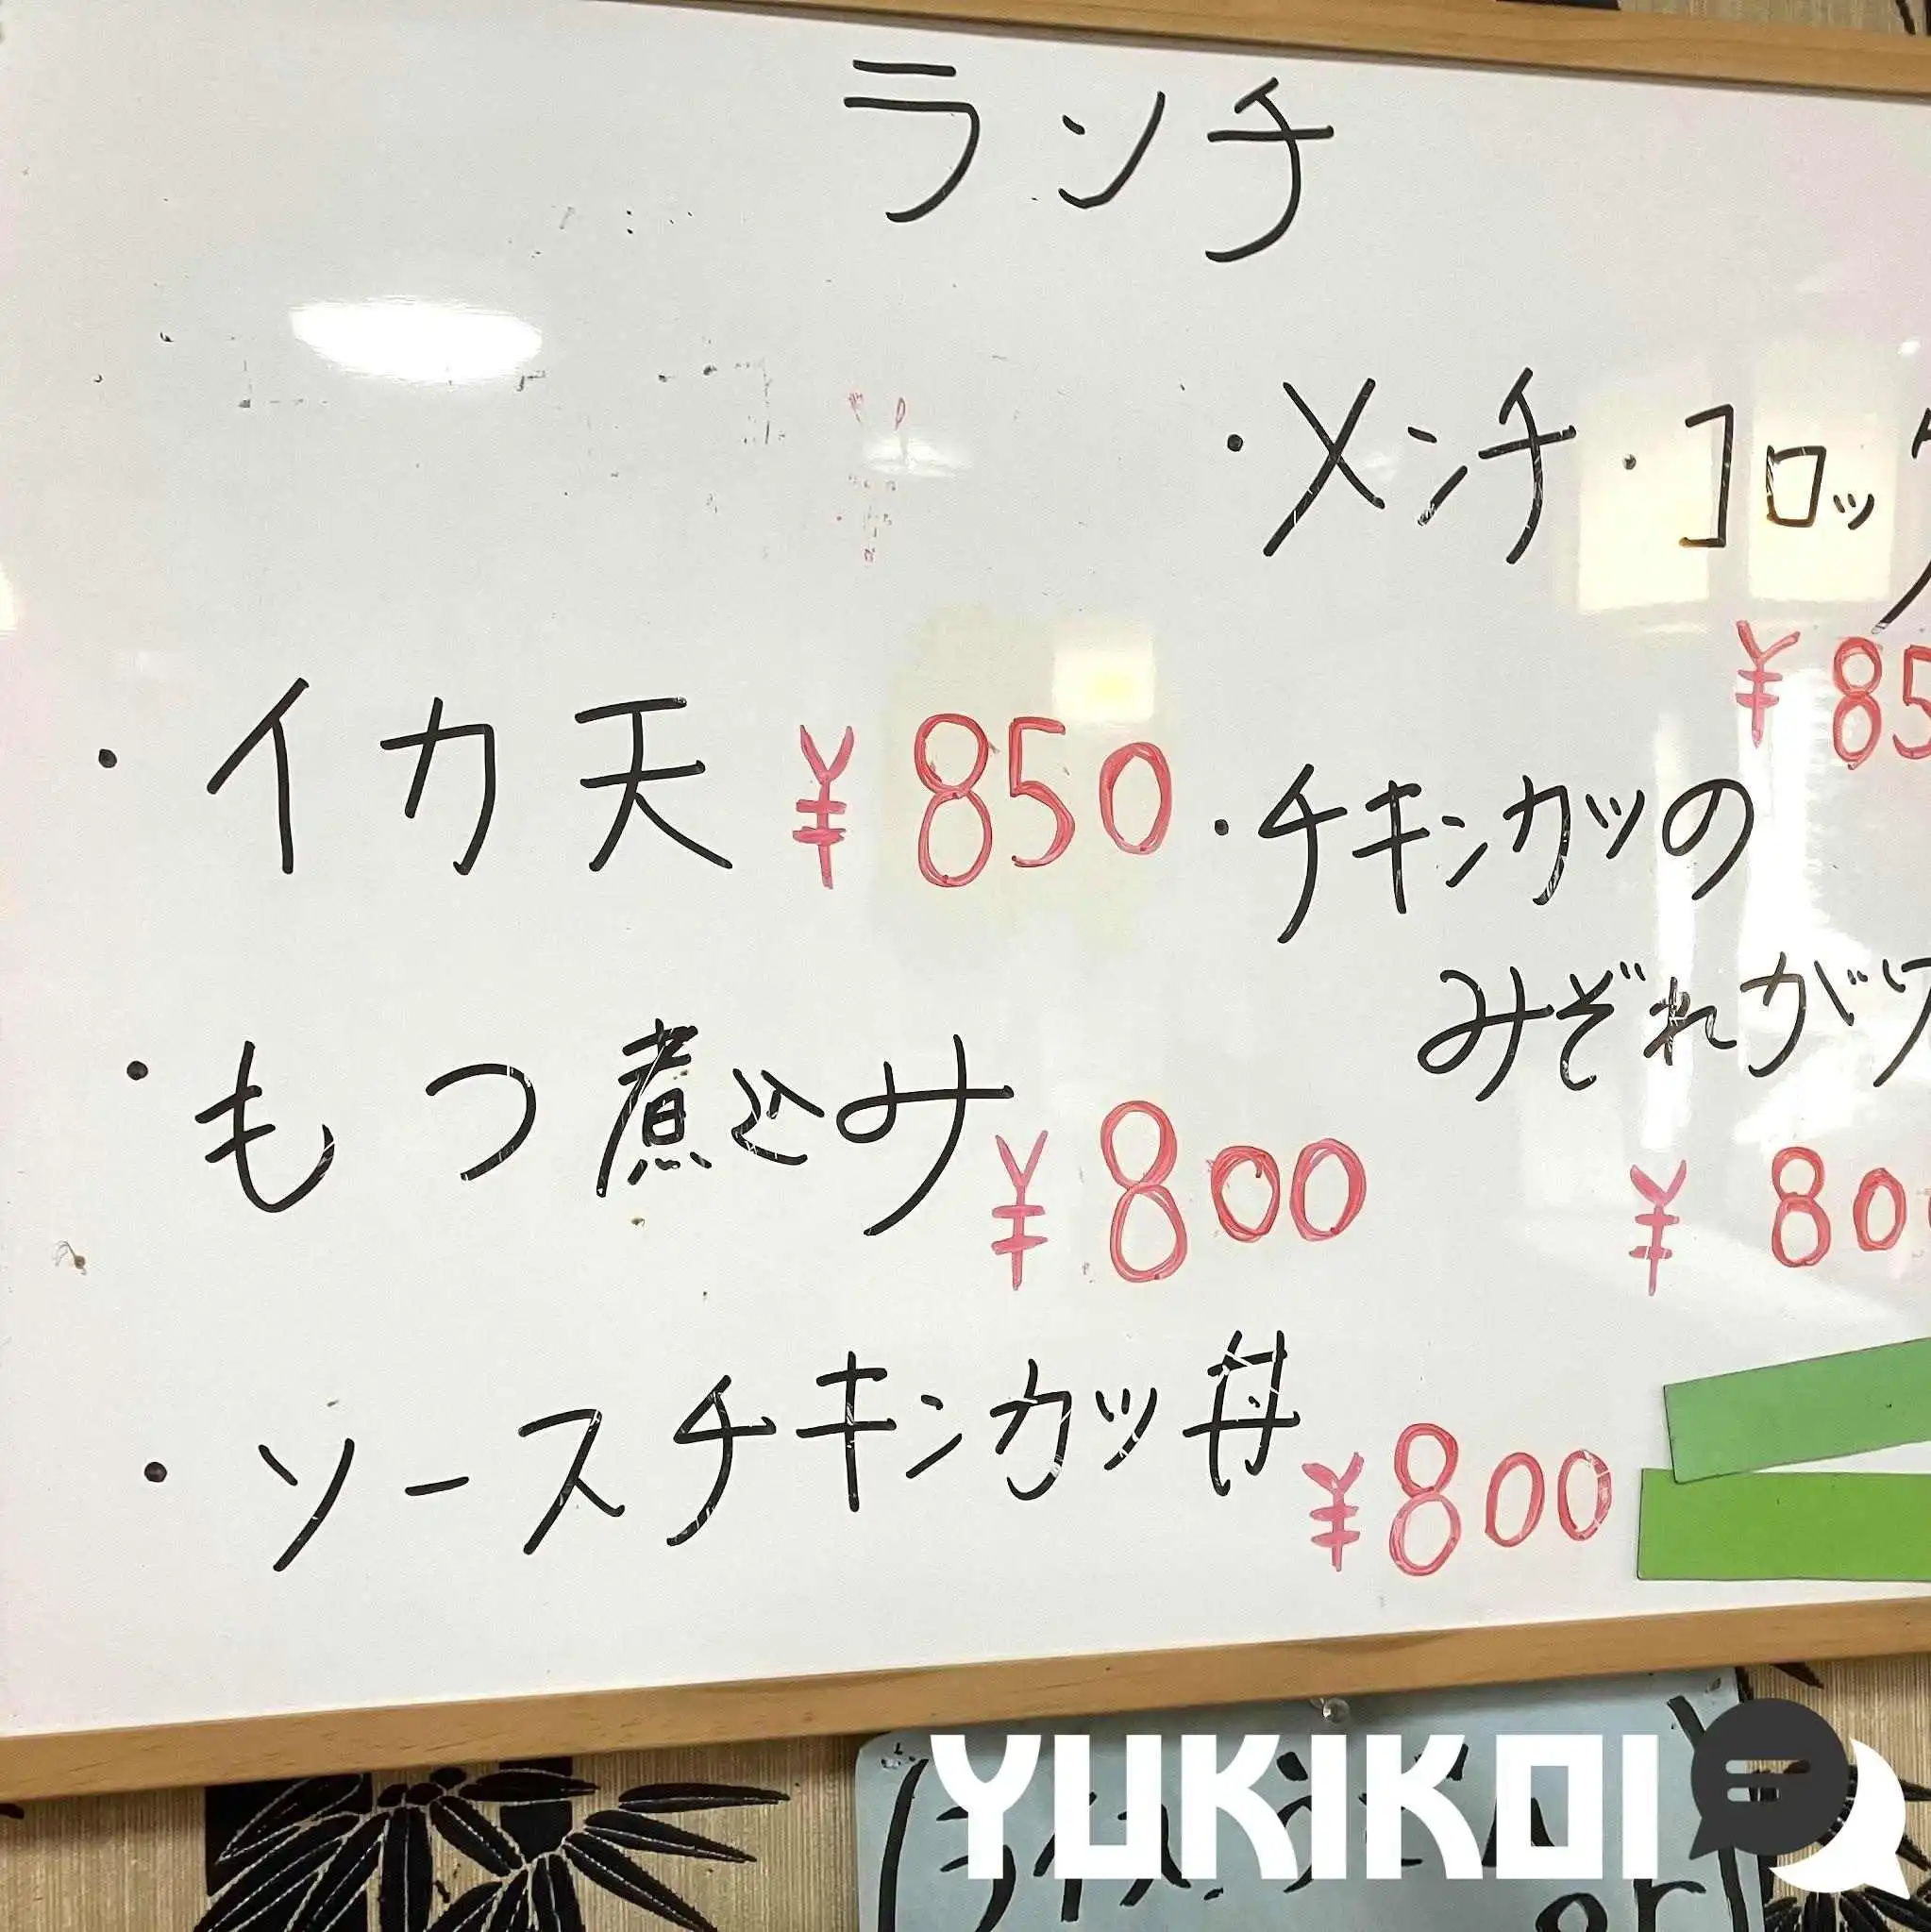 ランチ
・イカ天 ¥850
・もつ煮込み ¥800
・ソースチキンカツ丼 ¥800
・メンチ・コロッケ
¥85
・チキンカツの
みぞれがけ
¥80
YUKIKOI
or